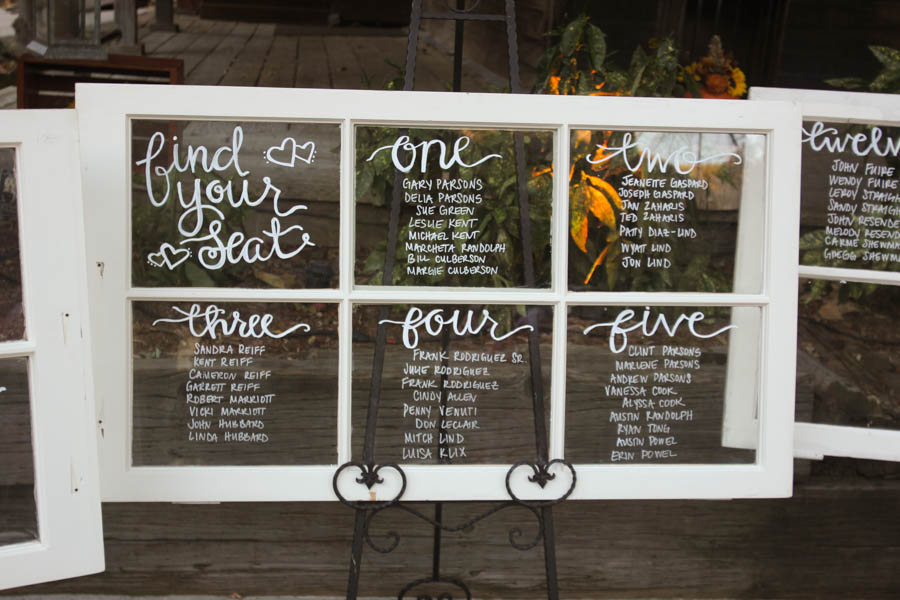 find
your
seat
one
GARY PARSONS
DELIA PARSONS
SUE GREEN
LESLIE KENT
MICHAEL KENT
MARCHETA RANDOLPH
BILL CULBERSON
MARGIE CULBERSON
two
JEANETTE GASPARD
JOSEPH GASPARD
JAN ZAHARIS
TED ZAHARIS
PATTY DIAZ-LIND
WYATT LIND
JON LIND
three
SANDRA REIFF
KENT REIFF
CAMERON REIFF
GARRETT REIFF
ROBERT MARRIOTT
VICKI MARRIOTT
JOHN HUBBARD
LINDA HUBBARD
four
FRANK RODRIGUEZ SR.
JULIE RODRIGUEZ
FRANK RODRIGUEZ
CINDY ALLEN
PENNY VENUTI
DON LECLAIR
MITCH LIND
LUISA KLIX
five
CLINT PARSONS
MARLENE PARSONS
ANDREW PARSONS
VANESSA COOK
ALYSSA COOK
AUSTIN RANDOLPH
RYAN TONG
AUSTIN POWEL
ERIN POWEL
JOHN FHIRE
WENDY FHIRE
LEROY
SANDY
JOHN
MELODY
CARME
GREGG